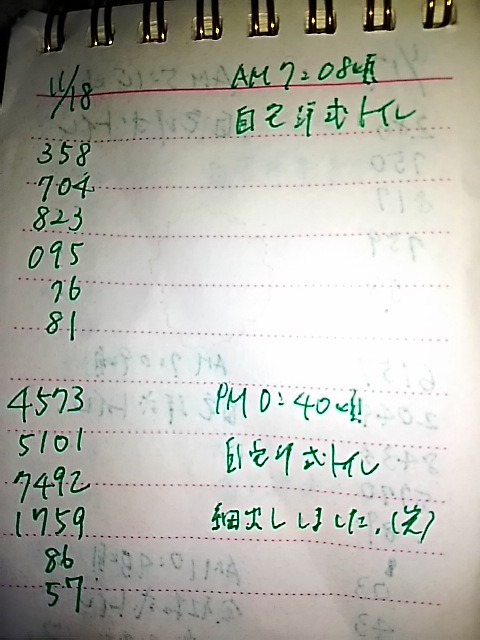 11/18 AM 7:08頃
自宅洋式トイレ
358
704
823
095
76
81
4573 PM 0:40頃
5101 自宅洋式トイレ
7492
1759 細出ししました。(笑)
86
57